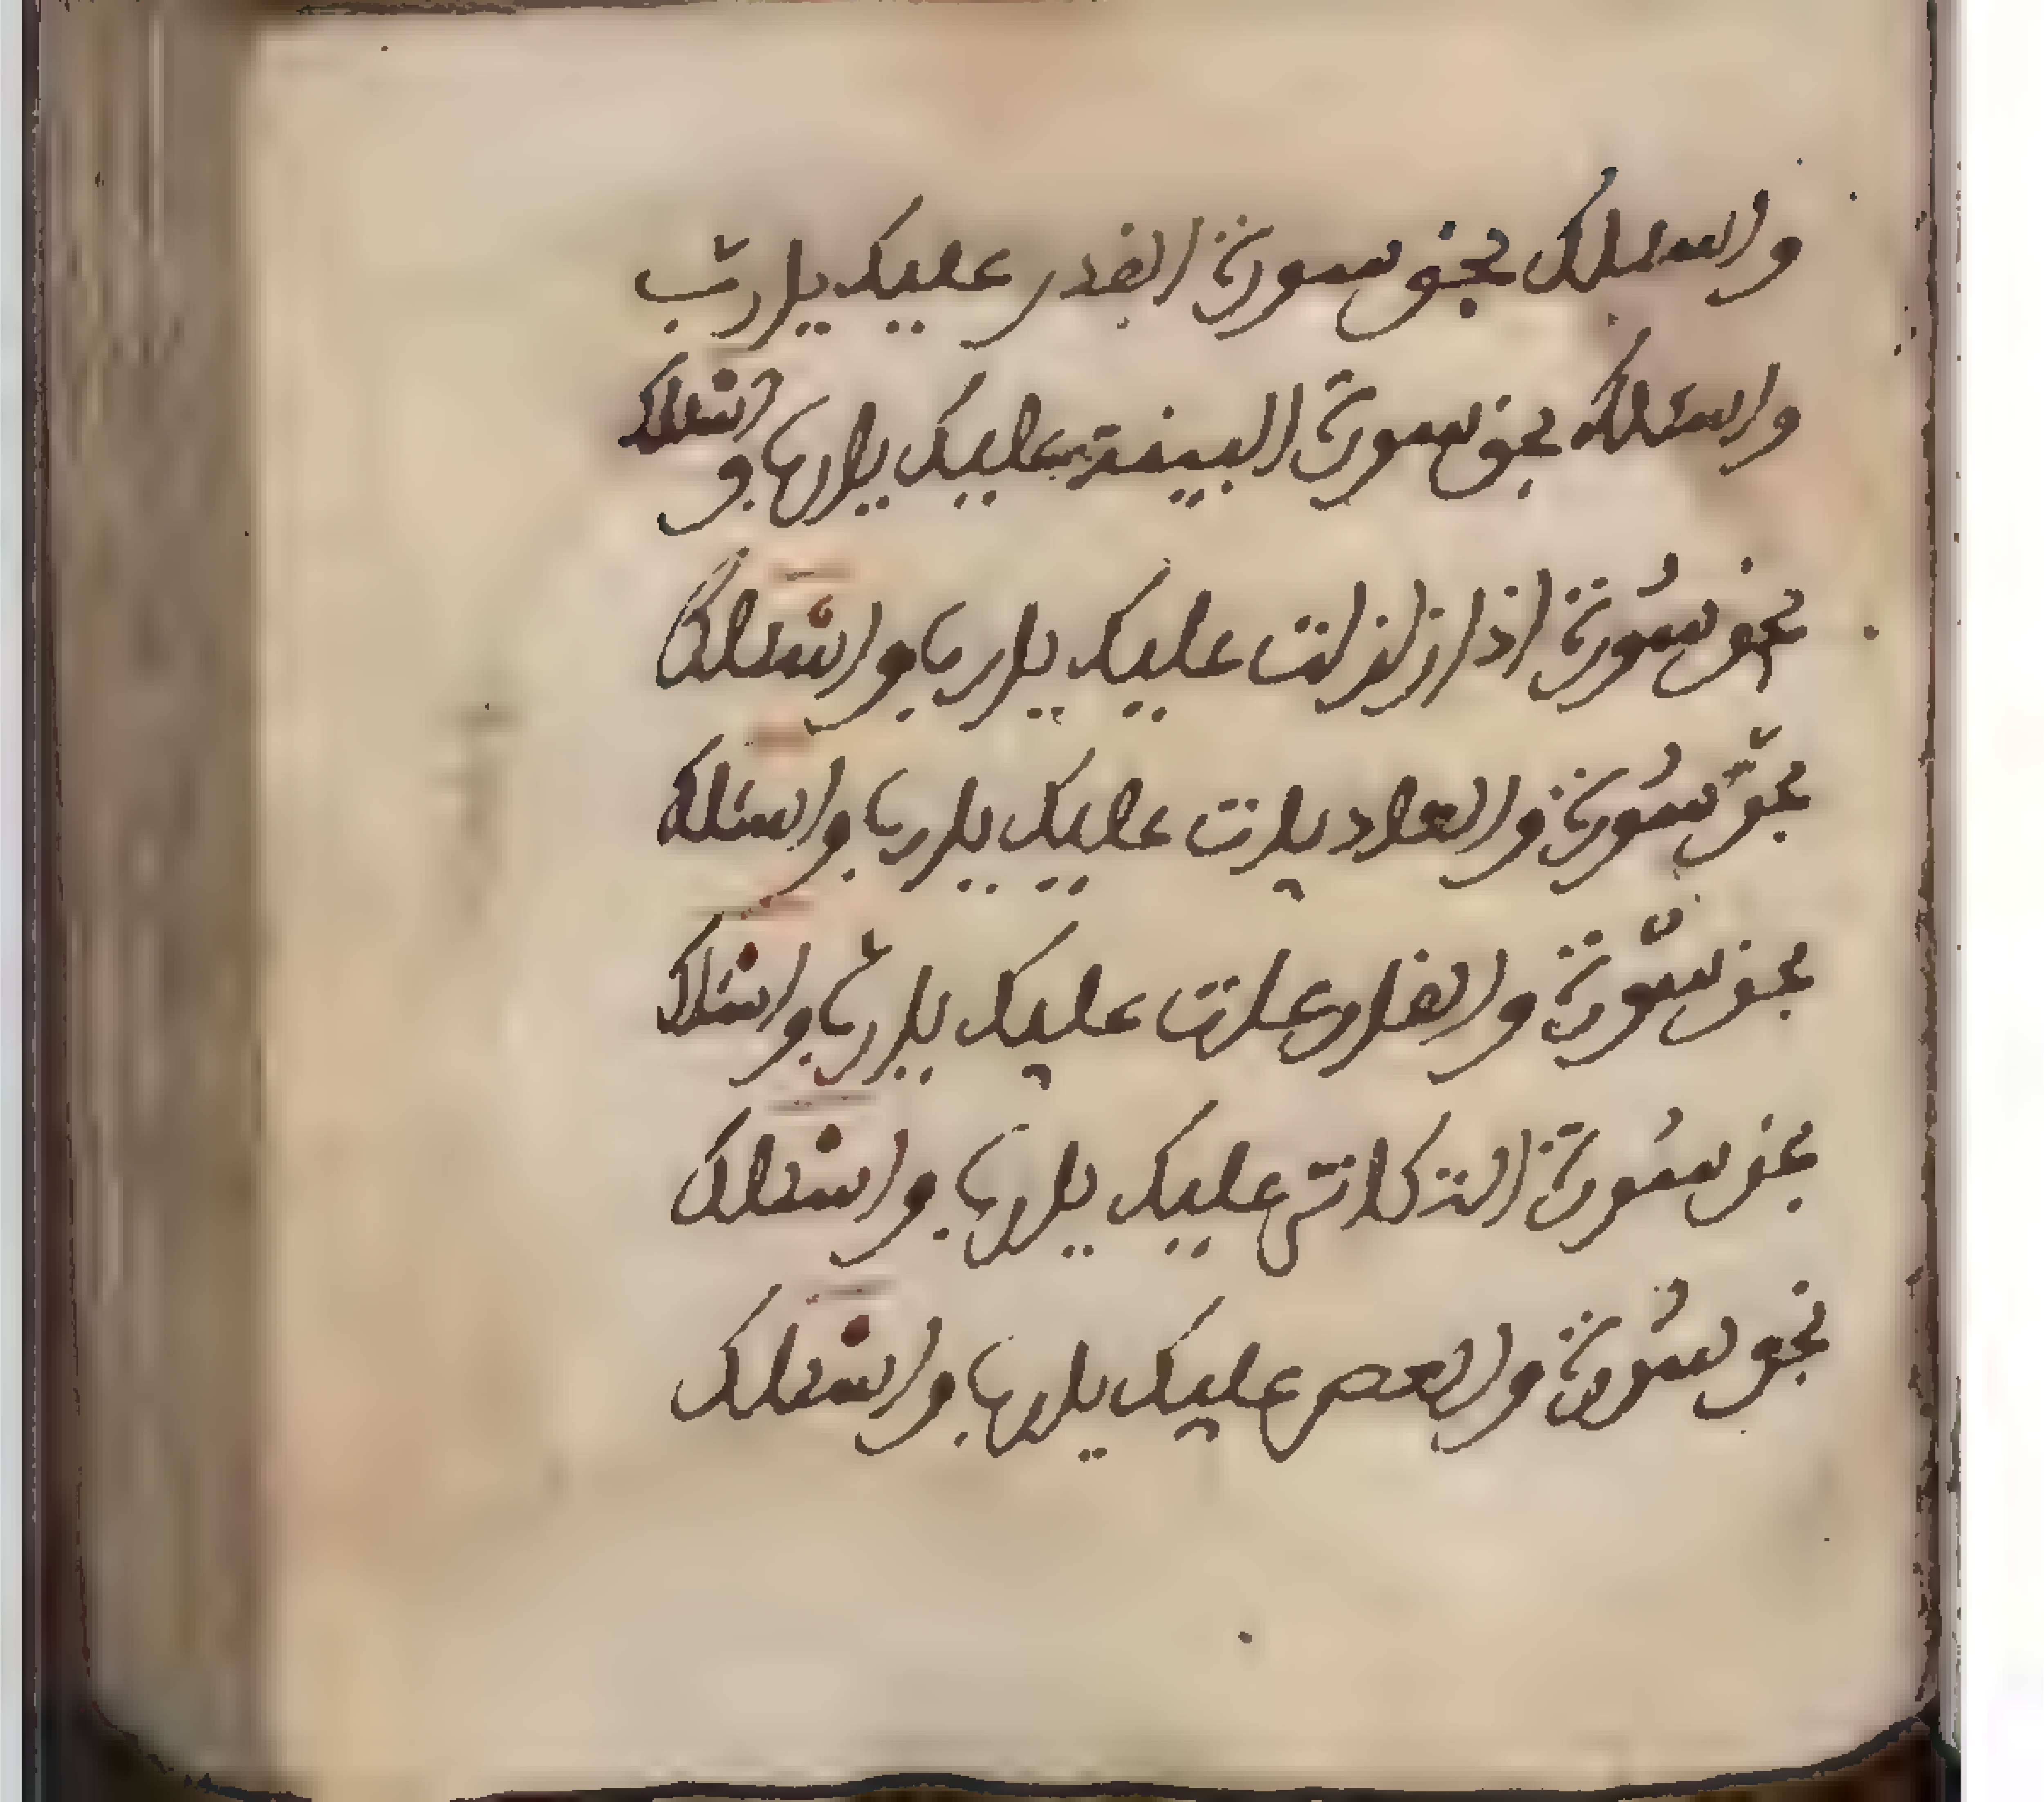 واسئلك بحق سورة القدر عليك يا رب
واسئلك بحق سورة البينة عليك يا ربا و اسئلك
بحق سورة اذا زلزلت عليك يا ربا واسئلك
بحق سورة والعاديات عليك يا ربا واسئلك
بحق سورة والقارعات عليك يا ربا واسئلك
بحق سورة التكاثر عليك يا ربا واسئلك
بحق سورة والعصر عليك يا ربا واسئلك